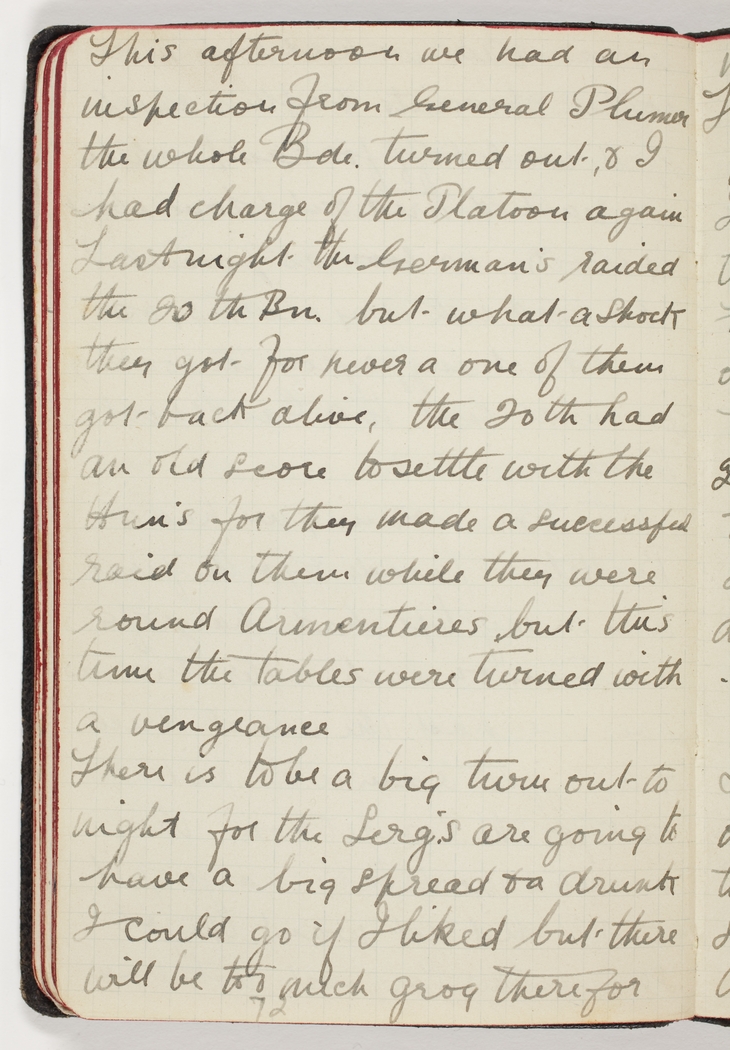 This afternoon we had an
inspection from General Plumer
the whole Bde. turned out, & I
had charge of the Platoon again
Last night the German's raided
the 20th Bn. but what a shock
they got for never a one of them
got back alive, the 20th had
an old score to settle with the
Hun's for they made a successful
raid on them while they were
round Armentieres, but this
time the tables were turned with
a vengeance
There is to be a big turn out to
night for the Serg's are going to
have a big spread & a drunk
I could go if I liked but there
will be too much grog there for
72